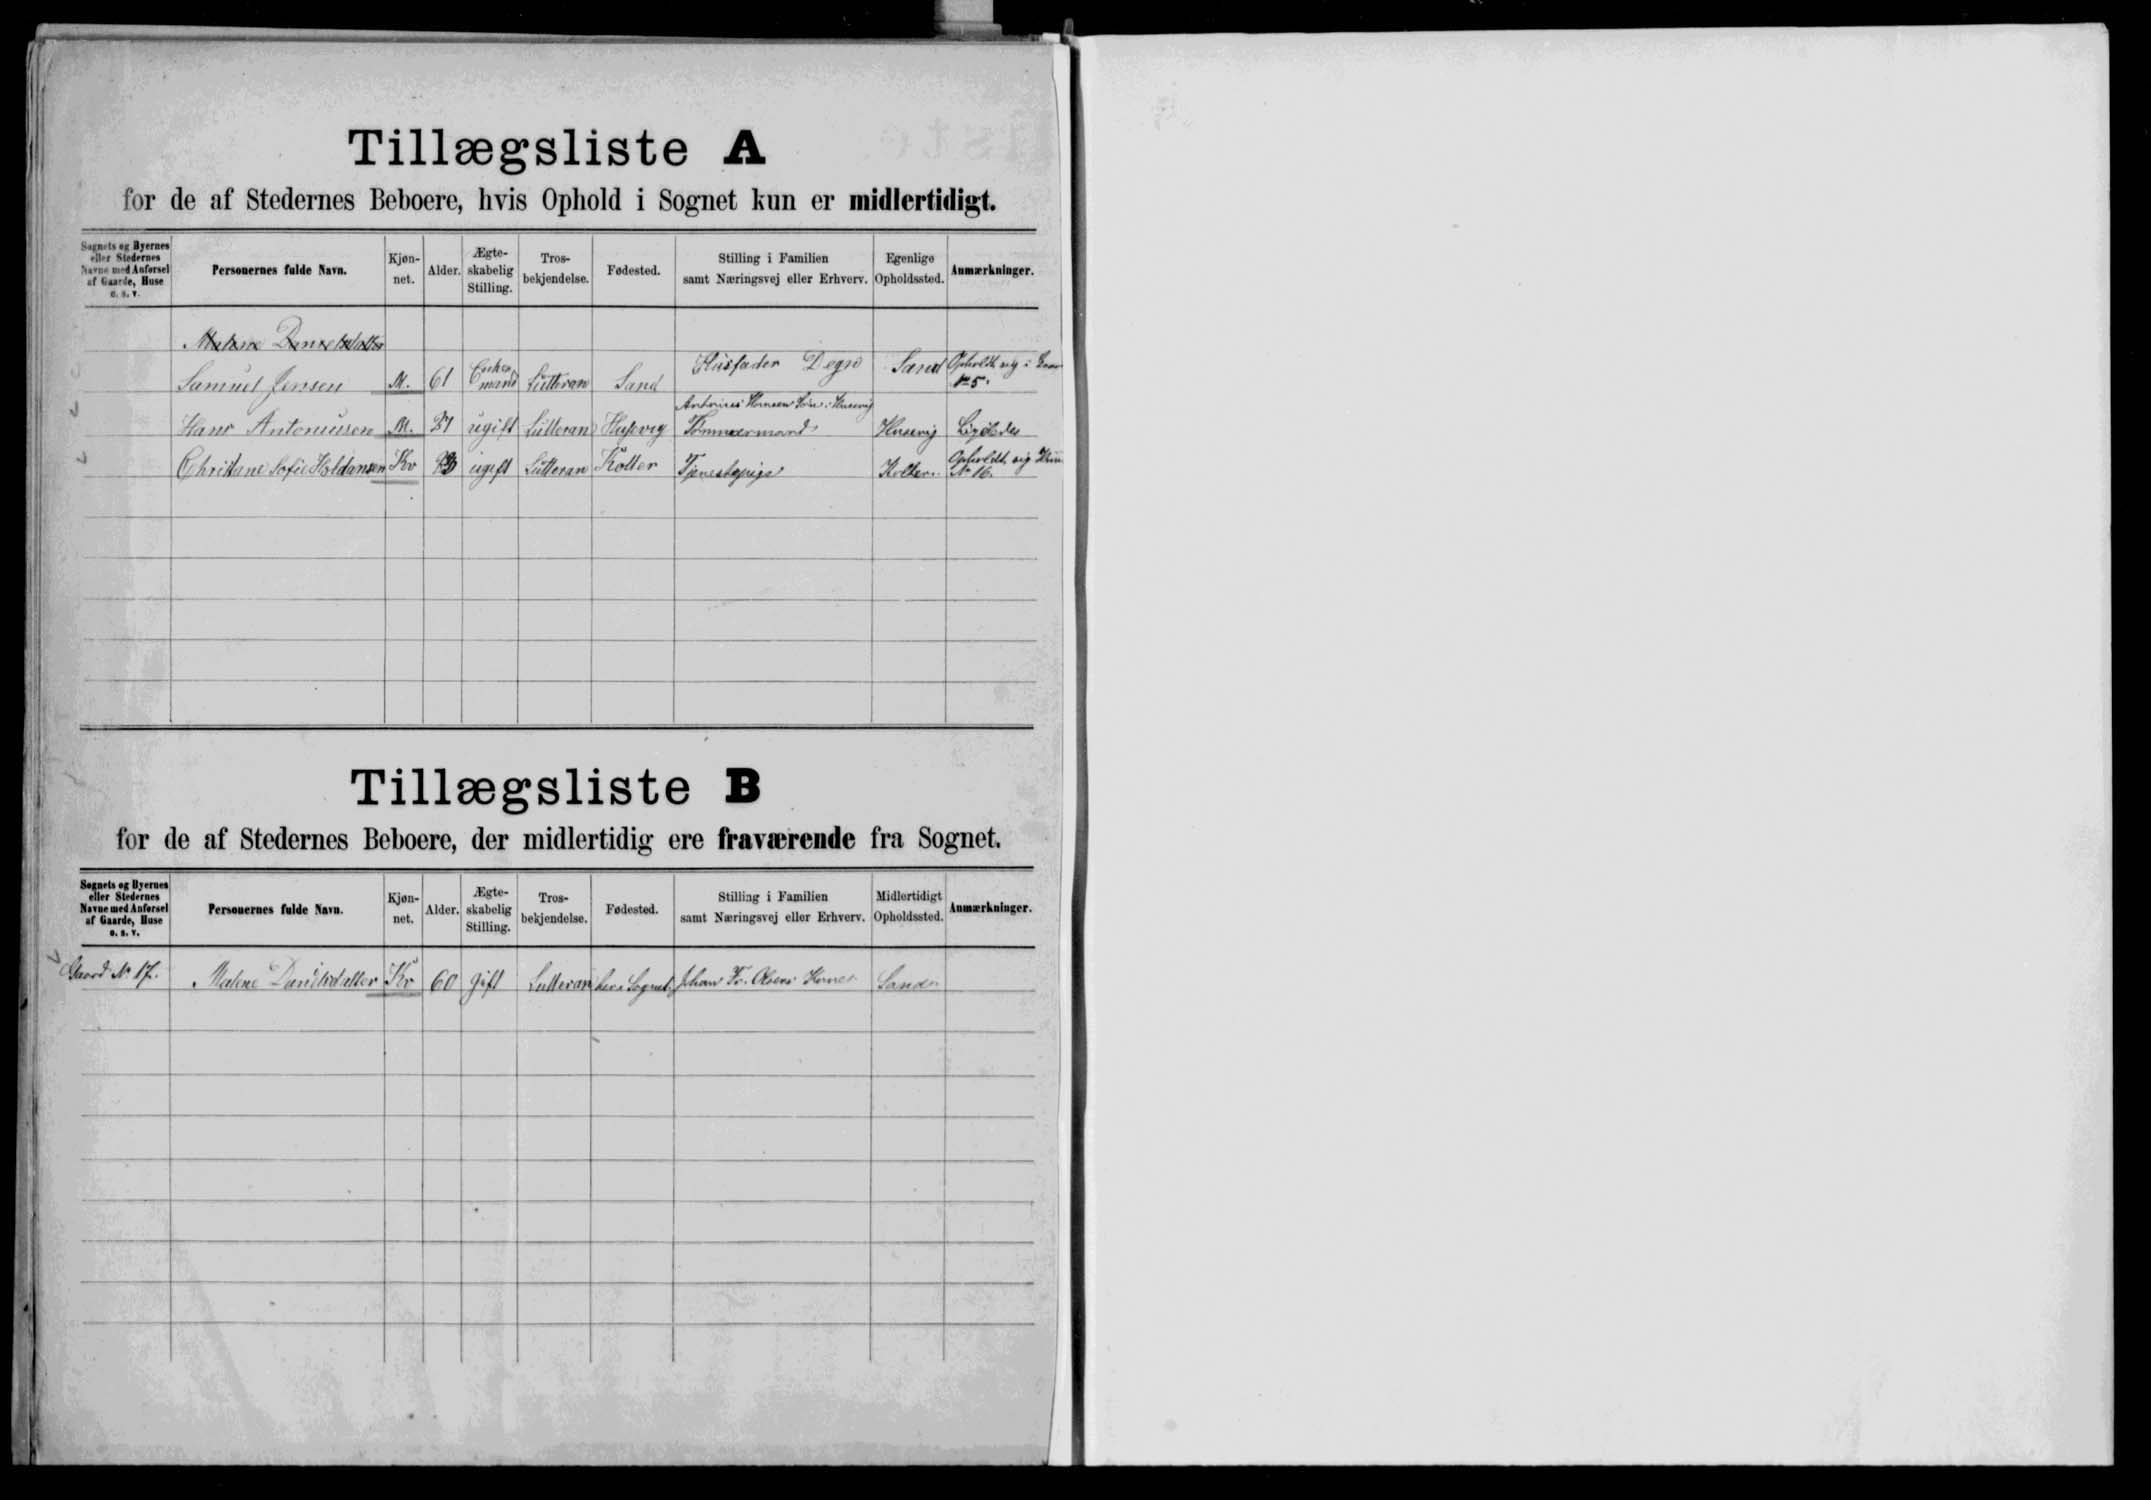 Tillægsliste A
for de af Stedernes Beboere, hvis Ophold i Sognet kun er midlertidigt.
Sognets og Byernes eller Stedernes Navne med Anførsel af Gaarde, Huse o. s. v.
Personernes fulde Navn.
Kjøn-net.
Alder.
Ægte-skabelig Stilling.
Tros-bekjendelse.
Fødested.
Stilling i Familien samt Næringsvej eller Erhverv.
Egenlige Opholdssted.
Anmærkninger.
Malene Danielsdatter
Samuel Jensen M. 61 Enkemand Lutteran Sand Husfader Degn Sand Opholdt sig i № 5.
Hans Antoniussen M. ugift Lutteran Husevig Hansen Søn i Husevig Tømmermand Husevig Ligeledes
Christane Sofie Joldansen Kv ugift Lutteran Kolter Tjenestepige Kolter. Opholdt sig № 16.
Tillægsliste B
for de af Stedernes Beboere, der midlertidig ere fraværende fra Sognet.
Sognets og Byernes eller Stedernes Navne med Anførsel af Gaarde, Huse o. s. v.
Personernes fulde Navn.
Kjøn-net.
Alder.
Ægte-skabelig Stilling.
Tros-bekjendelse.
Fødested.
Stilling i Familien samt Næringsvej eller Erhverv.
Midlertidigt Opholdssted.
Anmærkninger.
Gaard № 17. Malene Danielsdatter Kv 60 gift Lutteran her i Sognet Johan Fr. Olsens Kone Sand